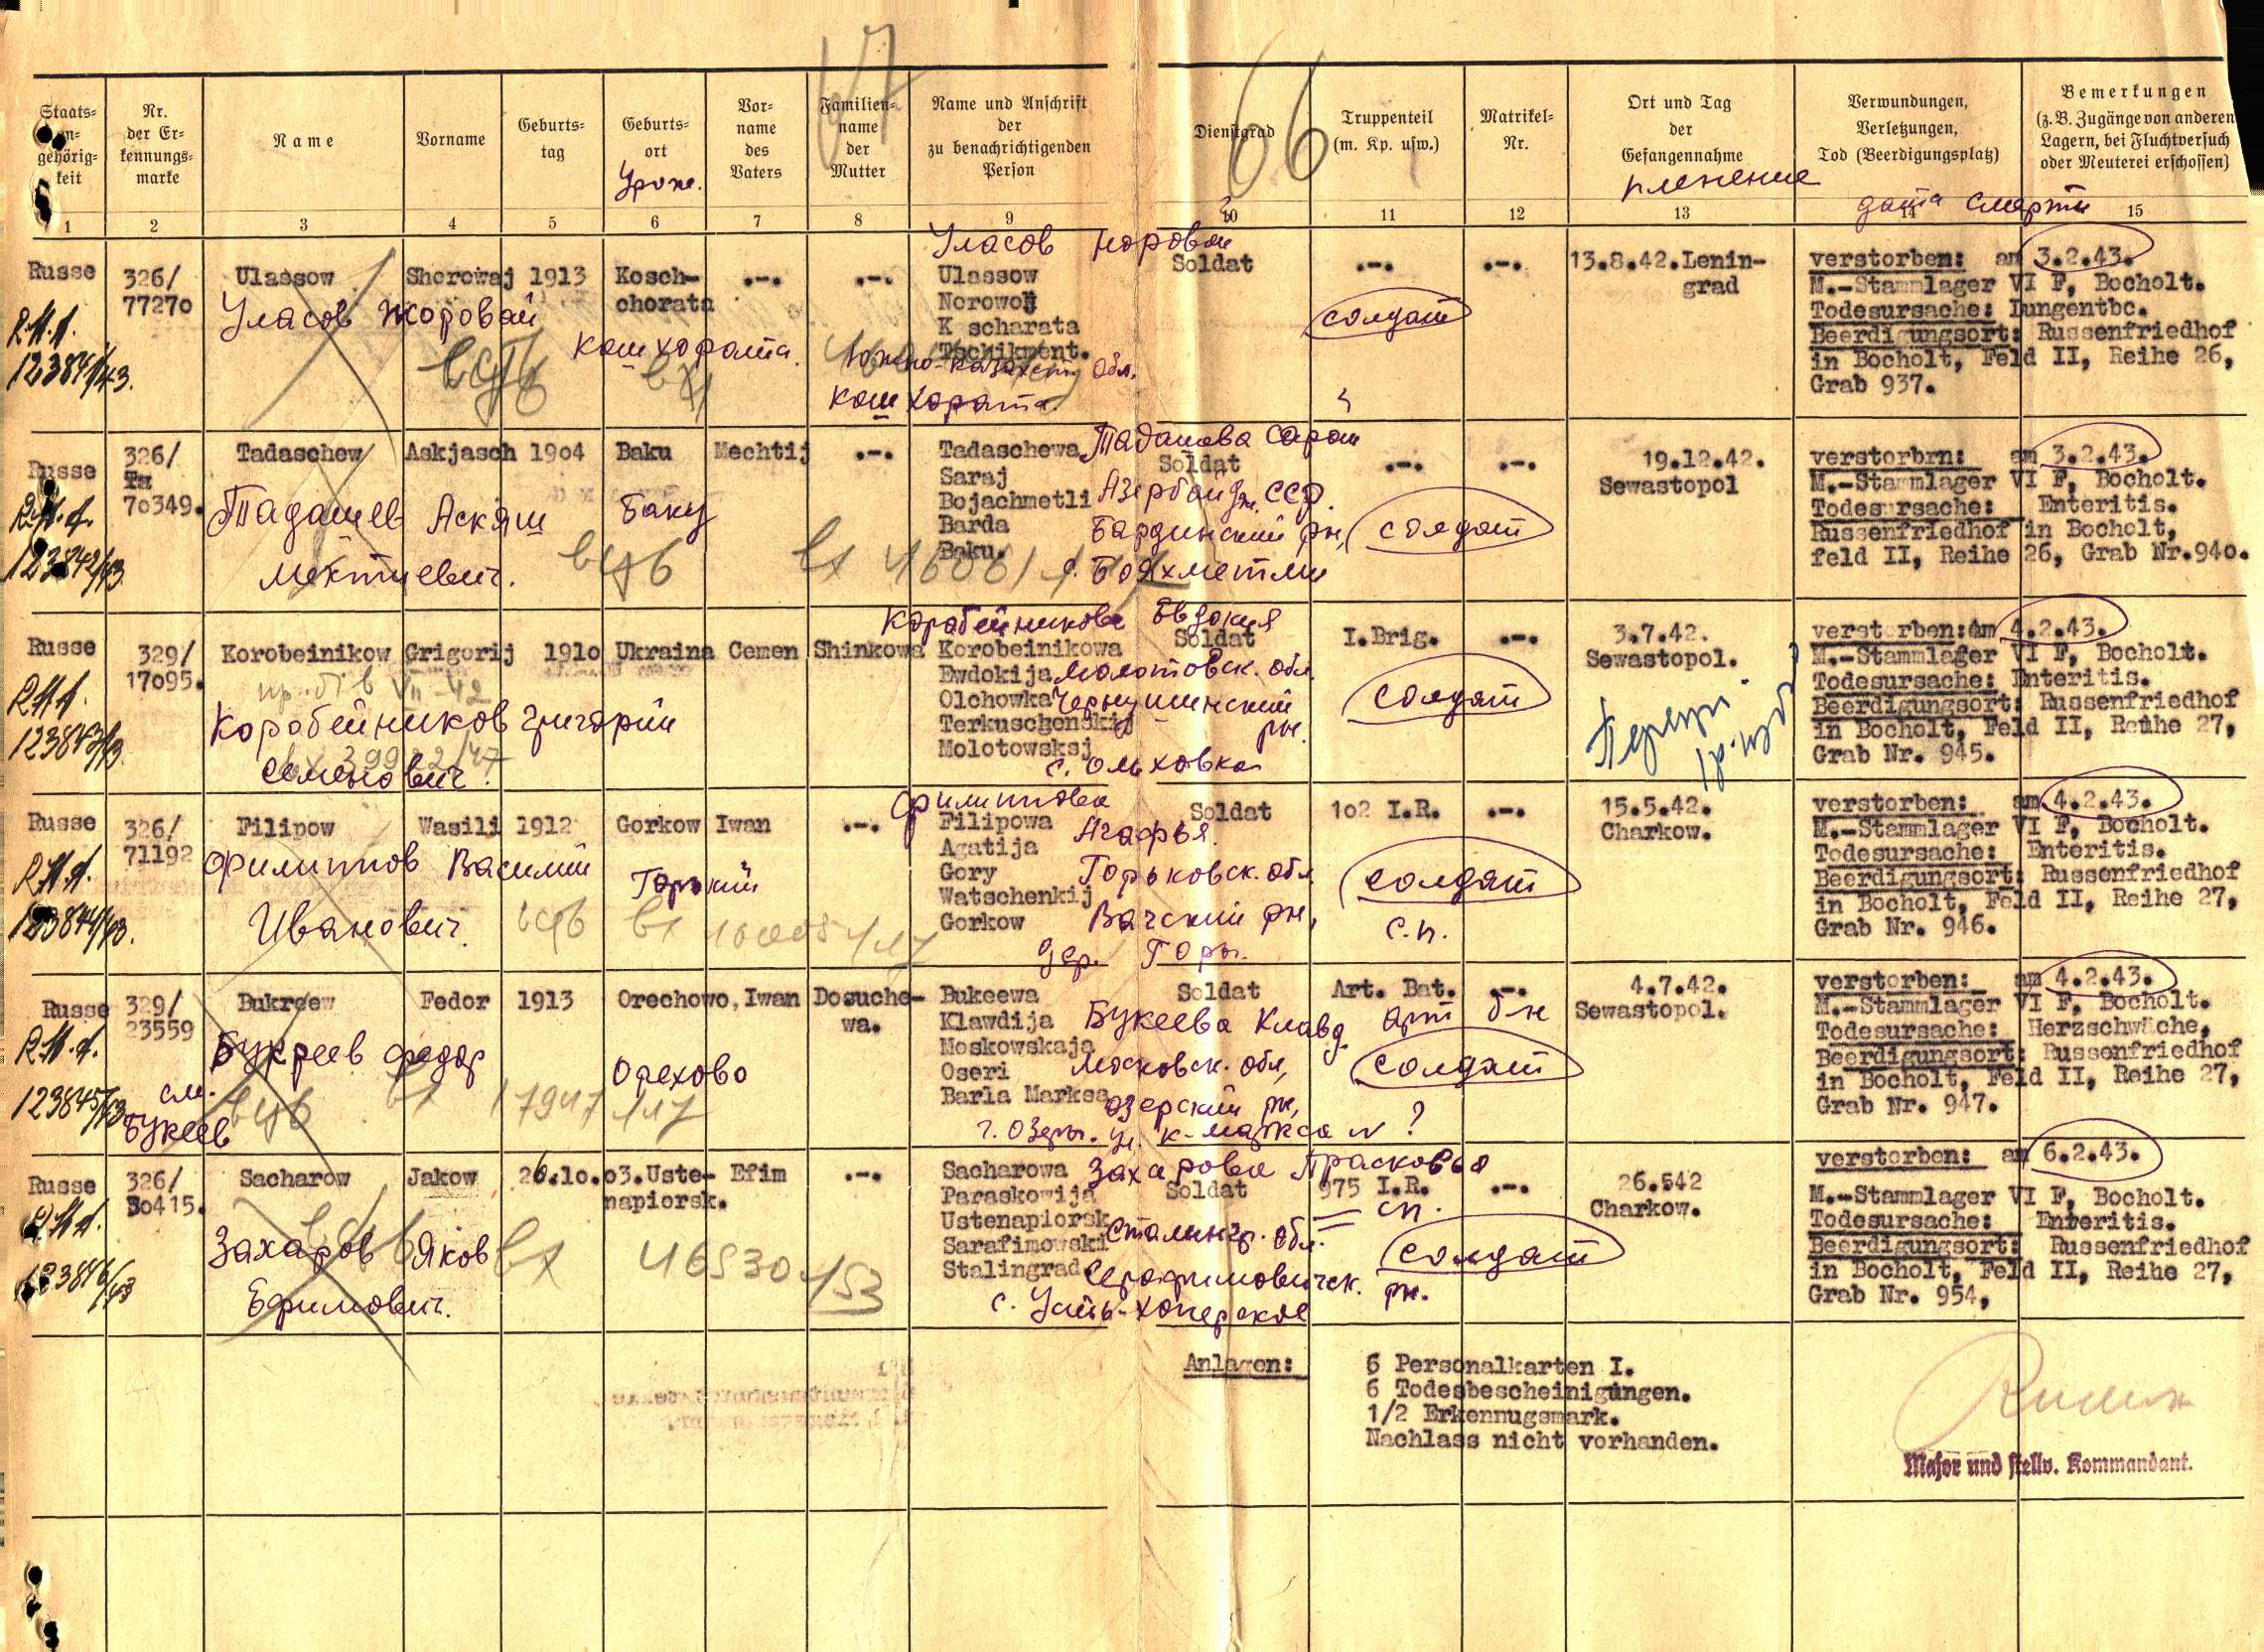 67
66
Staats-
an-
gehörig-
keit
Nr.
der Er-
kennungs-
marke
Name
Vorname
Geburts-
tag
Geburts-
ort
Урож.
Vor-
name
des
Vaters
Familien-
name
der
Mutter
Name und Anschrift
der
zu benachrichtigenden
Person
Dienstgrad
Truppenteil
(m. Kp. usw.)
Matrikel-
Nr.
Ort und Tag
der
Gefangennahme
пленение
Verwundungen,
Verletzungen,
Tod (Beerdigungsplatz)
дата смерти
Bemerkungen
(z. B. Zugänge von anderen
Lagern, bei Fluchtversuch
oder Meuterei erschossen)
1 2 3 4 5 6 7 8 9 10 11 12 13 14 15
Russe
326/
77270
Ulassow
Shorowaj
1913
Kosch-
chorata
.-.
.-.
Уласов Норовой
Ulassow
Norowoj
K scharata
Tschikment.
Южно-Казахст. обл.
Кошхората.
Soldat
.-.
солдат
.-.
13.8.42.Lenin-
grad
verstorben: am 3.2.43.
M.-Stammlager VI F, Bocholt.
Todesursache: Lungentbc.
Beerdigungsort: Russenfriedhof
in Bocholt, Feld II, Reihe 26,
Grab 937.
Уласов Жоровай
Кошхората.
123841/43.
Russe
326/
70349.
Tadaschew
Askjasch
1904
Baku
Mechtij
.-.
Tadaschewa
Saraj
Bojachmetli
Barda
Baku.
Тадашева Сарай
Азербайдж. ССР.
Бардинский рн,
с. Бояхметли
Soldat
.-.
солдат
.-.
19.12.42.
Sewastopol
verstorbrn: am 3.2.43.
M.-Stammlager VI F, Bocholt.
Todesursache: Enteritis.
Russenfriedhof in Bocholt,
feld II, Reihe 26, Grab Nr.940.
Тадашев Аскяш
Мехтиевич.
Баку
123842/43
Russe
329/
17095.
Korobeinikow
Grigorij
1910
Ukraina
Cemen
Shinkowa
Коробейникова Евдокия
Korobeinikowa
Ewdokija
Olchowka
Terkuschenskij
Molotowsksj
Молотовск. обл.
Чернушинский
рн.
с. Ольховка
Soldat
I.Brig.
солдат
.-.
3.7.42.
Sewastopol.
verstorben: am 4.2.43.
M.-Stammlager VI F, Bocholt.
Todesursache: Enteritis.
Beerdigungsort: Russenfriedhof
in Bocholt, Feld II, Reihe 27,
Grab Nr. 945.
Коробейников Григорий
Семенович.
123843/43
Russe
326/
71192
Filipow
Wasili
1912
Gorkow
Iwan
.-.
Филиппова
Filipowa
Agatija
Gory
Watschenkij
Gorkow
Агафья.
Горьковск. обл.
Вачский рн,
дер. Горы.
Soldat
102 I.R.
солдат
с.п.
.-.
15.5.42.
Charkow.
verstorben: am 4.2.43.
M.-Stammlager VI F, Bocholt.
Todesursache: Enteritis.
Beerdigungsort: Russenfriedhof
in Bocholt, Feld II, Reihe 27,
Grab Nr. 946.
Филиппов Василий
Иванович.
Горький
123844/43.
Russe
329/
23559
Bukreew
Fedor
1913
Orechowo,
Iwan
Dosuche-
wa.
Bukeewa
Klawdija
Moskowskaja
Oseri
Barla Marksa
Букеева Клавд.
Московск. обл,
Озерский рн,
г. Озеры. ул. К-Маркса N ?
Soldat
Art. Bat.
арт б-н
солдат
.-.
4.7.42.
Sewastopol.
verstorben: am 4.2.43.
M.-Stammlager VI F, Bocholt.
Todesursache: Herzschwäche,
Beerdigungsort: Russenfriedhof
in Bocholt, Feld II, Reihe 27,
Grab Nr. 947.
Букреев Федор
Орехово
см.
Букеев
123845/43
Russe
326/
30415.
Sacharow
Jakow
26.10.03.
Uste-
napiorsk.
Efim
.-.
Sacharowa
Paraskowija
Ustenapiorsk
Sarafimowski
Stalingrad.
Захарова Прасковья
Сталингр. обл.
Серафимовичск. рн.
с. Усть-Хоперское
Soldat
975 I.R.
сп.
солдат
.-.
26.542
Charkow.
verstorben: am 6.2.43.
M.-Stammlager VI F, Bocholt.
Todesursache: Enteritis.
Beerdigungsort: Russenfriedhof
in Bocholt, Feld II, Reihe 27,
Grab Nr. 954,
Захаров Яков
Ефимович.
46530/53
123846/43
Anlagen:
6 Personalkarten I.
6 Todesbescheinigungen.
1/2 Erkennugsmark.
Nachlass nicht vorhanden.
Major und stellv. Kommandant.